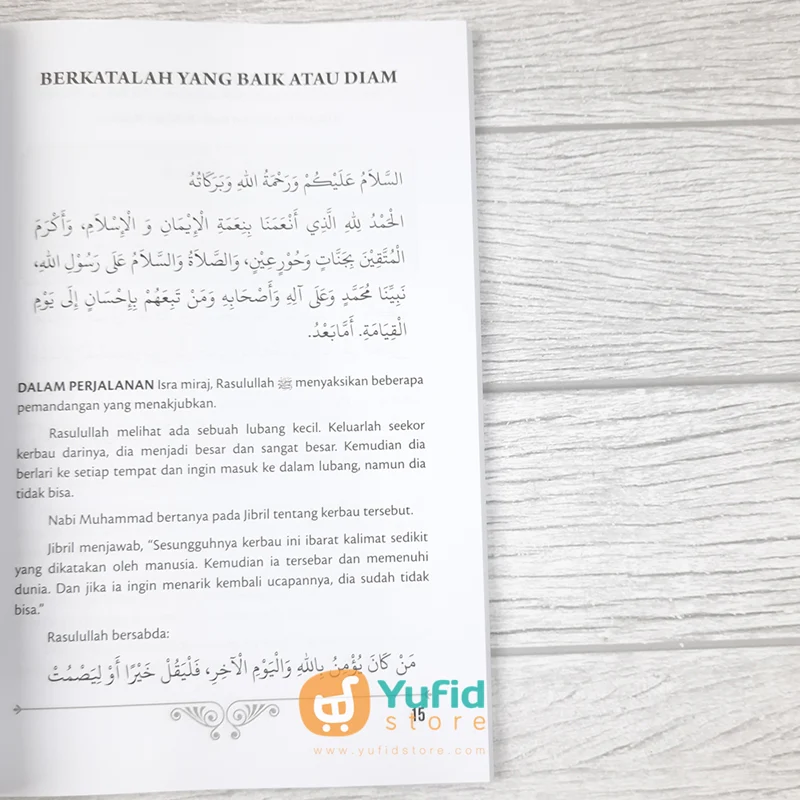 BERKATALAH YANG BAIK ATAU DIAM
السَّلاَمُ عَلَيْكُمْ وَرَحْمَةُ اللهِ وَبَرَكَاتُهُ
الْحَمْدُ لِلهِ الَّذِي أَنْعَمَنَا بِنِعْمَةِ الْإِيْمَانِ وَ الْإِسْلَامِ، وَأَكْرَمَ
الْمُتَّقِيْنَ بِجَنَّاتٍ وَحُوْرٍ عِيْنٍ، وَالصَّلَاةُ وَالسَّلَامُ عَلَى رَسُوْلِ اللهِ،
نَبِيِّنَا مُحَمَّدٍ وَعَلَى آلِهِ وَأَصْحَابِهِ وَمَنْ تَبِعَهُمْ بِإِحْسَانٍ إِلَى يَوْمِ
الْقِيَامَةِ. أَمَّابَعْدُ.
DALAM PERJALANAN Isra miraj, Rasulullah ﷺ menyaksikan beberapa
pemandangan yang menakjubkan.
Rasulullah melihat ada sebuah lubang kecil. Keluarlah seekor
kerbau darinya, dia menjadi besar dan sangat besar. Kemudian dia
berlari ke setiap tempat dan ingin masuk ke dalam lubang, namun dia
tidak bisa.
Nabi Muhammad bertanya pada Jibril tentang kerbau tersebut.
Jibril menjawab, “Sesungguhnya kerbau ini ibarat kalimat sedikit
yang dikatakan oleh manusia. Kemudian ia tersebar dan memenuhi
dunia. Dan jika ia ingin menarik kembali ucapannya, dia sudah tidak
bisa.”
Rasulullah bersabda:
مَنْ كَانَ يُؤْمِنُ بِاللهِ وَالْيَوْمِ الْآخِرِ، فَلْيَقُلْ خَيْرًا أَوْ لِيَصْمُتْ
15
Yufid
store
www.yufidstore.com